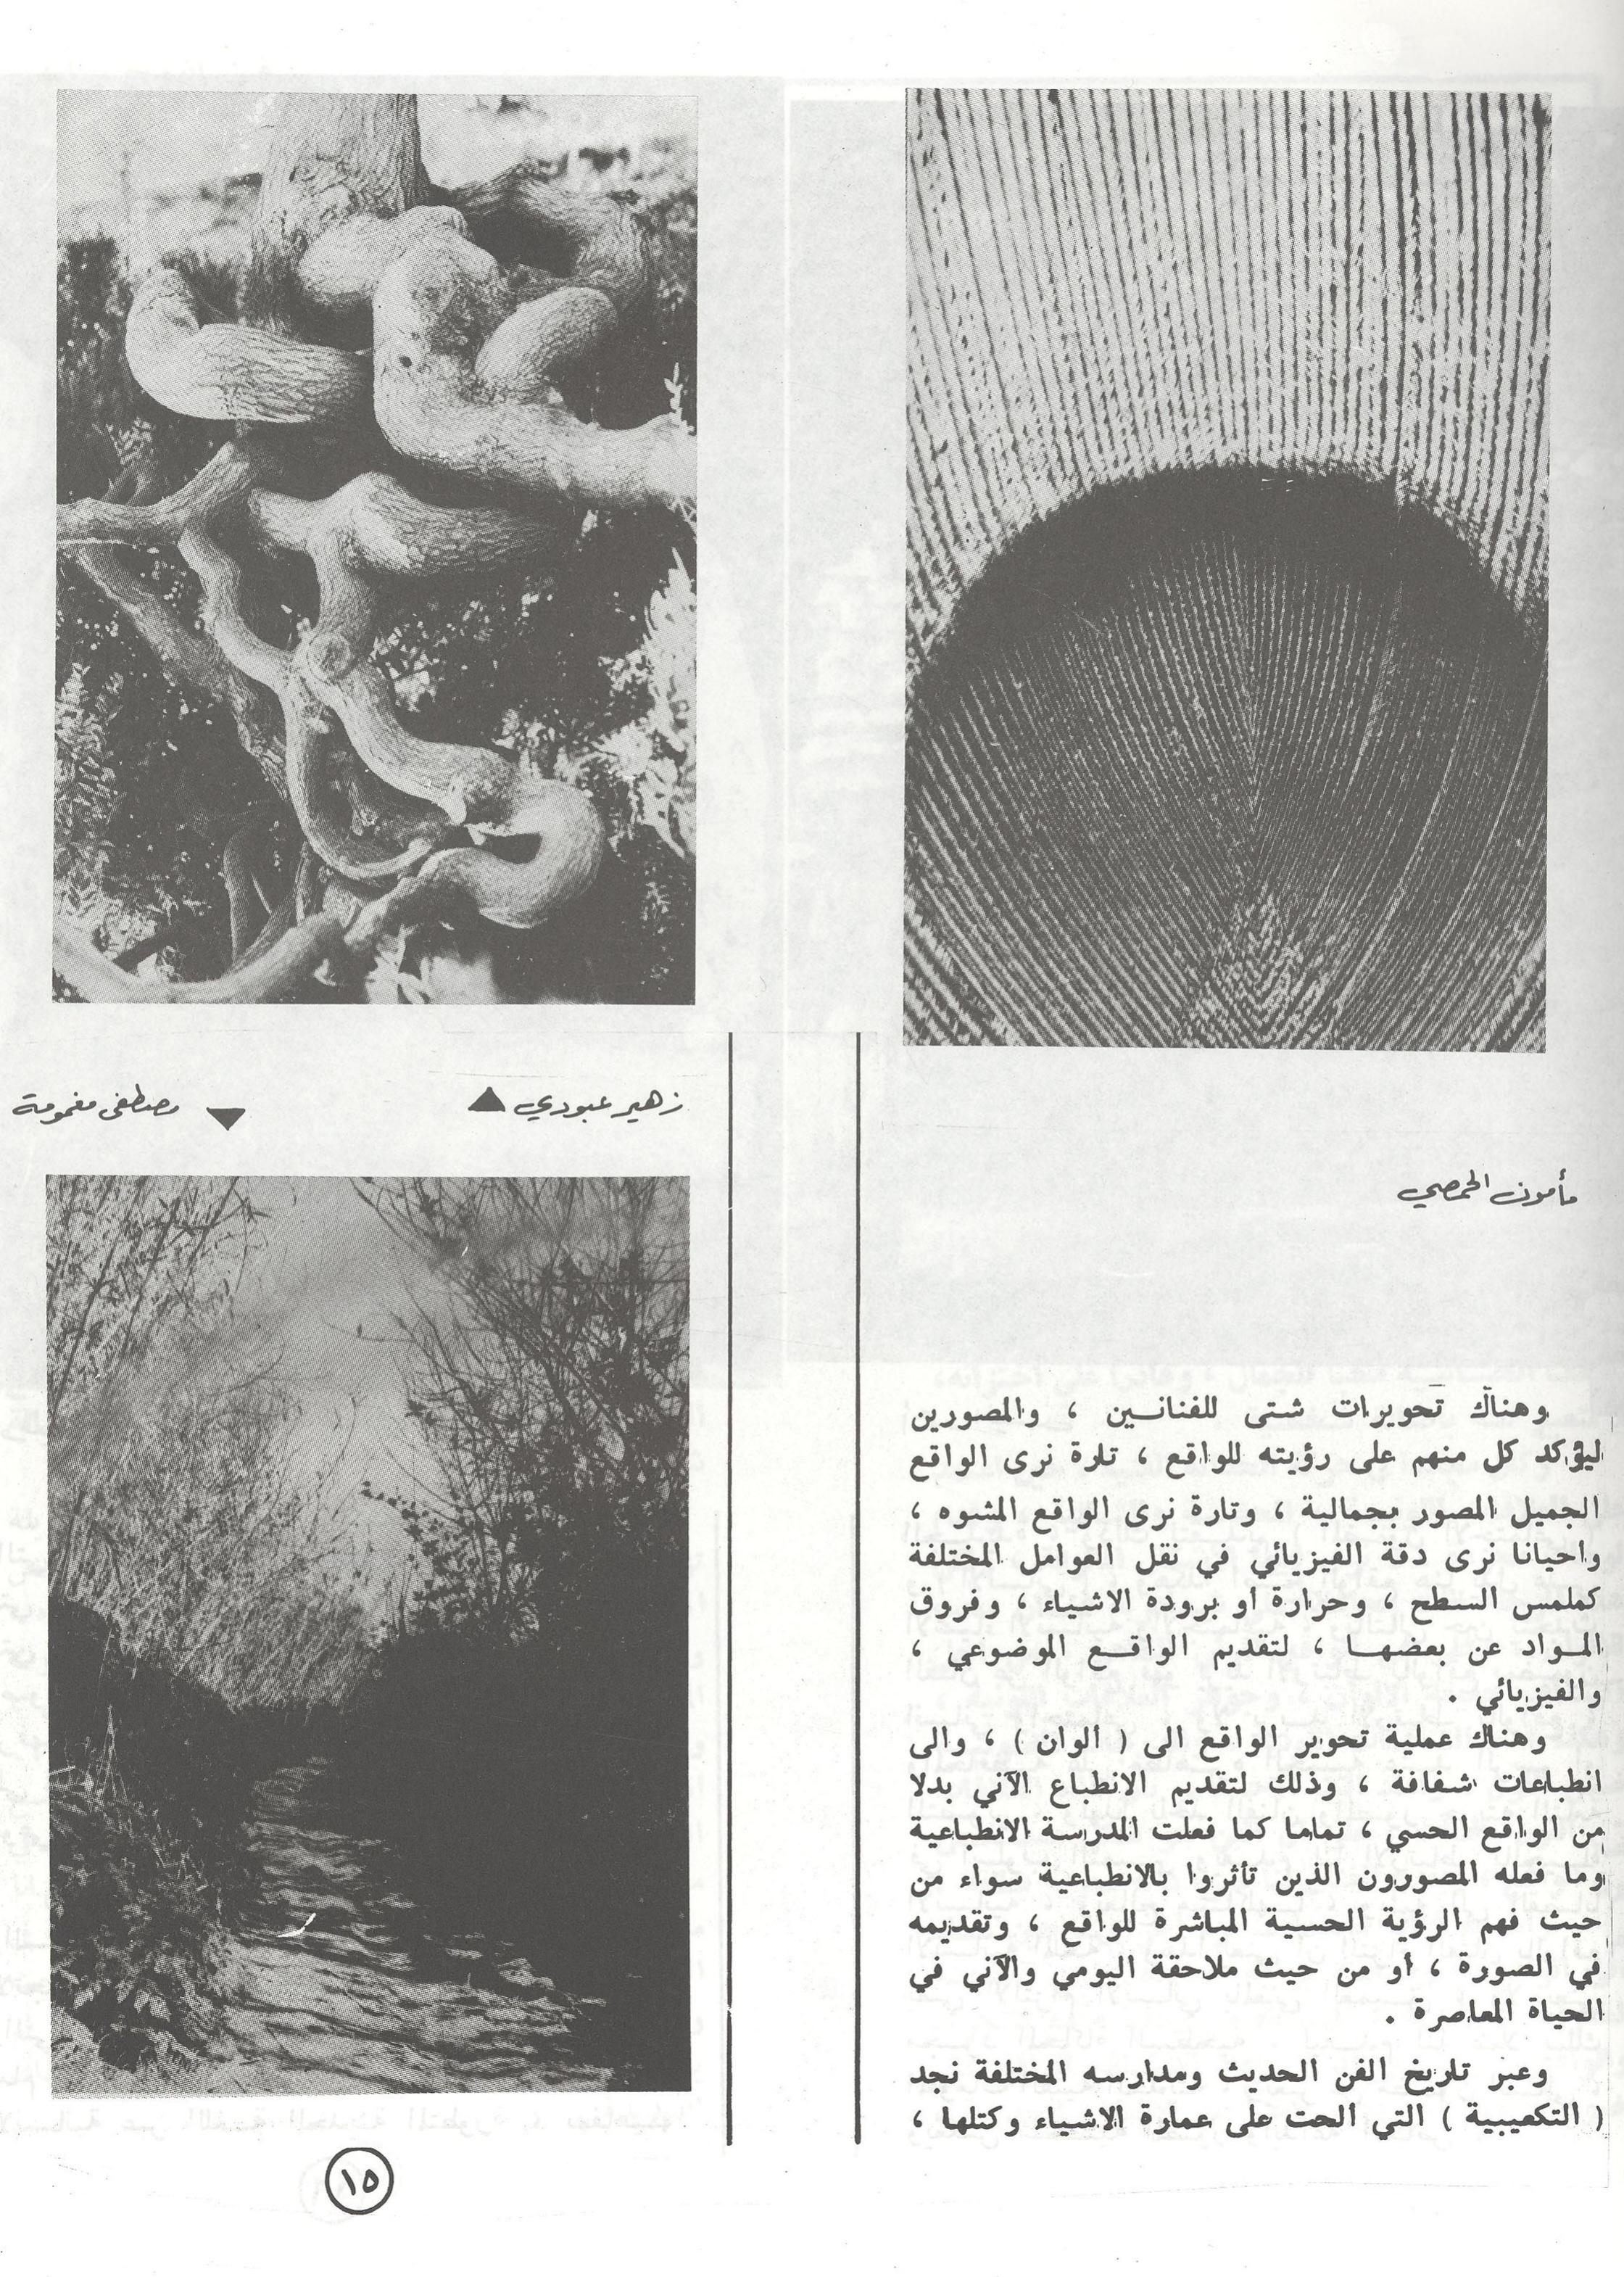 مأمون الحمصي
وهناك تحويرات شتى للفنانين ، والمصورين
ليؤكد كل منهم على رؤيته للواقع ، تارة نرى الواقع
الجميل المصور بجمالية ، وتارة نرى الواقع المشوه ،
واحيانا نرى دقة الفيزيائي في نقل العوامل المختلفة
كملمس السطح ، وحرارة او برودة الاشياء ، وفروق
المواد عن بعضها ، لتقديم الواقع الموضوعي ،
والفيزيائي .
وهناك عملية تحوير الواقع الى ( ألوان ) ، والى
انطباعات شفافة ، وذلك لتقديم الانطباع الآني بدلا
من الواقع الحسي ، تماما كما فعلت المدرسة الانطباعية
وما فعله المصورون الذين تأثروا بالانطباعية سواء من
حيث فهم الرؤية الحسية المباشرة للواقع ، وتقديمه
في الصورة ، أو من حيث ملاحقة اليومي والآني في
الحياة المعاصرة .
وعبر تاريخ الفن الحديث ومدارسه المختلفة نجد
( التكعيبية ) التي الحت على عمارة الاشياء وكتلها ،
زهير عبودي
مصطفى مغمومة
١٥